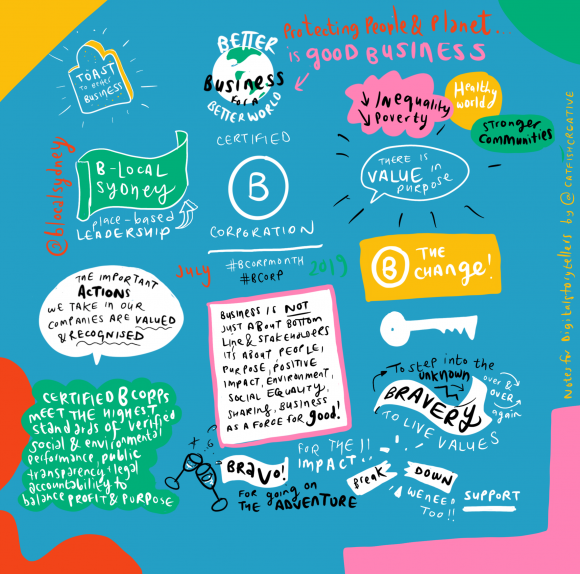 TOAST
to other
BUSINESS
BETTER
Business
FOR A
BETTER WORLD
Protecting People & Planet...
is GOOD BUSINESS
↘ Inequality
↘ Poverty
Healthy
world
Stronger
Communities
@blocalsydney
B-LOCAL
SYDNEY
place-based
LEADERSHIP
CERTIFIED
B
CORPORATION
#BCORPMONTH
#BCORP
JULY
2019
THERE IS
VALUE in
PURPOSE
B THE
CHANGE!
THE IMPORTANT
ACTIONS
WE TAKE IN OUR
COMPANIES ARE VALUED
& RECOGNISED
BUSINESS IS NOT
JUST ABOUT BOTTOM
LINE & STAKEHOLDERS
IT'S ABOUT PEOPLE,
PURPOSE, POSITIVE
IMPACT, ENVIRONMENT,
SOCIAL EQUALITY,
SHARING, BUSINESS
AS A FORCE FOR good!
To step into the
unknown
over &
OVER
again
BRAVERY
TO LIVE VALUES
CERTIFIED B CORPS
MEET THE HIGHEST
standards of verified
social & environmental
performance, public
transparency + legal
accountability to
balance PROFIT & PURPOSE
BRAVO!
FOR going on
THE ADVENTURE
FOR THE !!
IMPACT!
Break
DOWN
WE NEED
TOO!!
SUPPORT
Notes for Digital Storytellers by @CATFISHCREATIVE